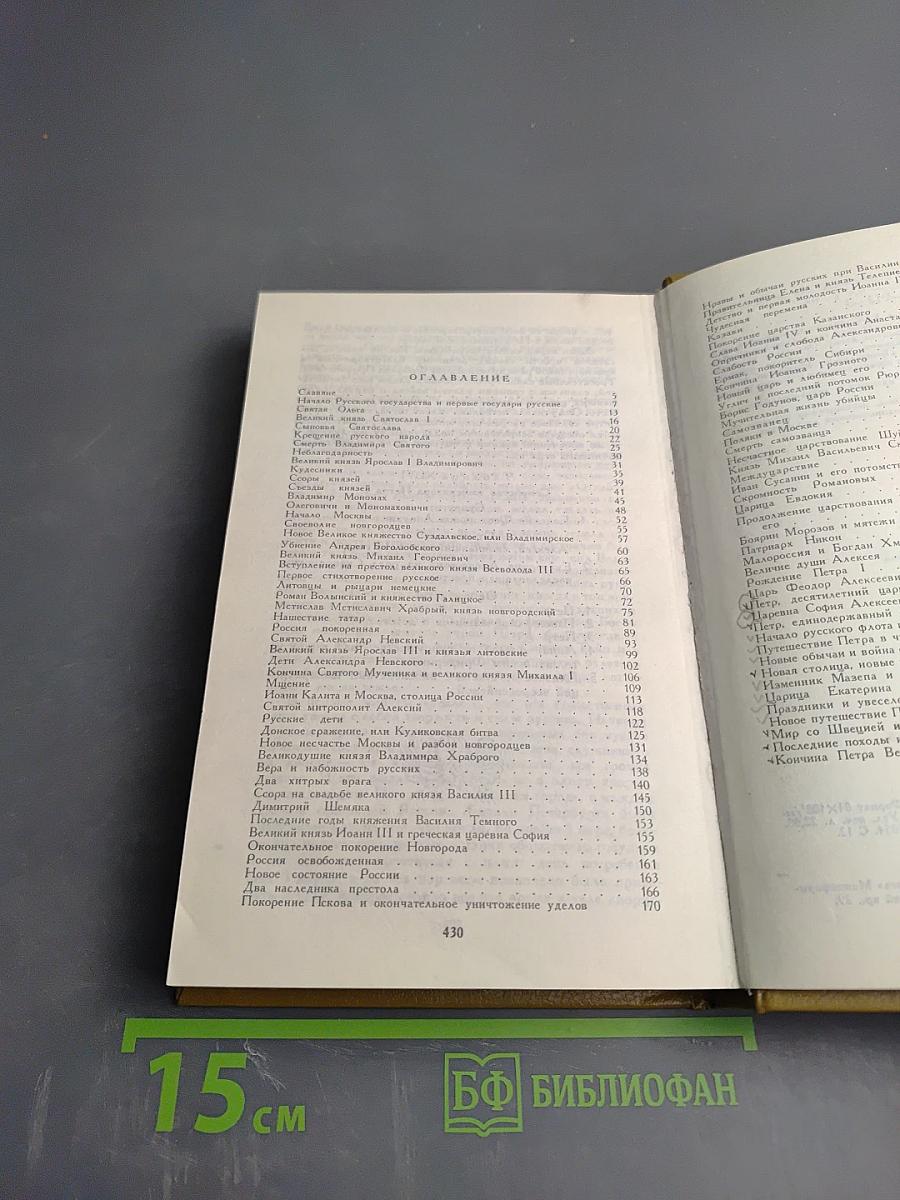 ОГЛАВЛЕНИЕ
Славяне 5
Начало Русского государства и первые государи русские 7
Святая Ольга 13
Великий князь Святослав I 16
Сыновья Святослава 20
Крещение русского народа 22
Смерть Владимира Святого 25
Неблагодарность 30
Великий князь Ярослав I Владимирович 31
Кудесники 35
Ссоры князей 39
Съезды князей 41
Владимир Мономах 45
Олеговичи и Мономаховичи 48
Начало Москвы 52
Своеволие новгородцев 55
Новое Великое княжество Суздальское, или Владимирское 57
Убиение Андрея Боголюбского 60
Великий князь Михаил Георгиевич 63
Вступление на престол великого князя Всеволода III 65
Первое стихотворение русское 66
Литовцы и рыцари немецкие 70
Роман Волынский и княжество Галицкое 72
Мстислав Мстиславич Храбрый, князь новгородский 75
Нашествие татар 81
Россия покоренная 89
Святой Александр Невский 93
Великий князь Ярослав III и князья литовские 99
Дети Александра Невского 102
Кончина Святого Мученика и великого князя Михаила I 106
Мщение 109
Иоанн Калита и Москва, столица России 113
Святой митрополит Алексий 118
Русские дети 122
Донское сражение, или Куликовская битва 125
Новое несчастье Москвы и разбои новгородцев 131
Великодушие князя Владимира Храброго 134
Вера и набожность русских 138
Два хитрых врага 140
Ссора на свадьбе великого князя Василия III 145
Димитрий Шемяка 150
Последние годы княжения Василия Темного 153
Великий князь Иоанн III и греческая царевна София 155
Окончательное покорение Новгорода 159
Россия освобожденная 161
Новое состояние России 163
Два наследника престола 166
Покорение Пскова и окончательное уничтожение уделов 170
430
Нравы и обычаи русских при Василии
Правительница Елена и князь
Детство и первая молодость Иоанна
Чудесная перемена
Казаки
Покорение царства Казанского
Слава Иоанна IV и кончина
Опричники и слобода
Слабость России
Ермак, покоритель Сибири
Кончина Иоанна Грозного
Новый царь и любимец его
Углич и последний потомок
Борис Годунов, царь России
Мучительная жизнь убийцы
Самозванец
Поляки в Москве
Смерть самозванца
Несчастное царствование
Князь Михаил Васильевич
Междуцарствие
Иван Сусанин и его
Скромность Романовых
Царица Евдокия
Продолжение царствования
его
Боярин Морозов и
Патриарх Никон
Малороссия и Богдан
Величие души Алексея
Рождение Петра I
Царь Феодор
Петр, десятилетний
Царевна София
Петр, единодержавный
Начало русского флота
Путешествие Петра в
Новые обычаи и война
Новая столица, новые
Изменник Мазепа и
Царица Екатерина
Праздники и
Новое путешествие
Мир со Швецией и
Последние походы
Кончина Петра
15 см
БФ БИБЛИОФАН